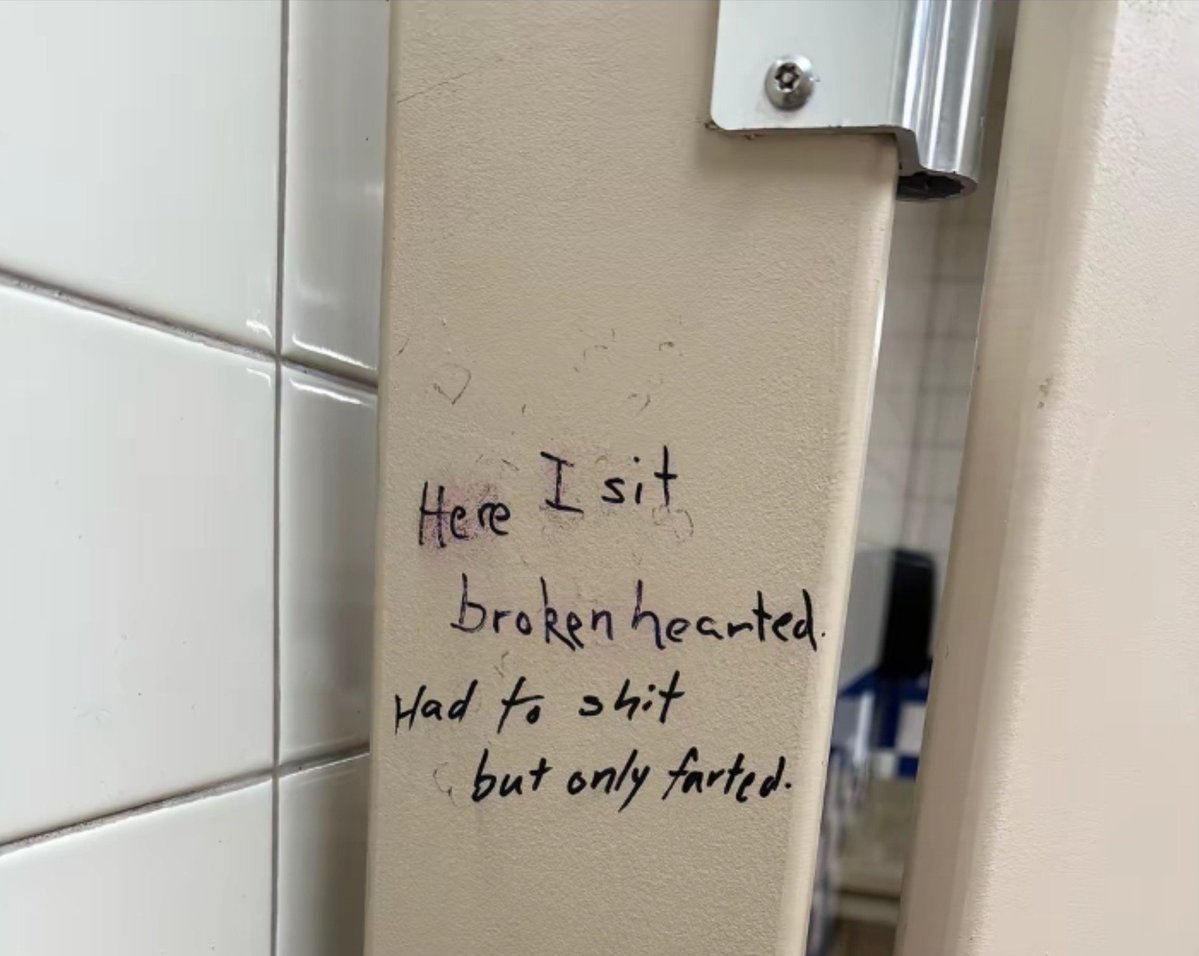 Here I sit
broken hearted.
Had to shit
but only farted.